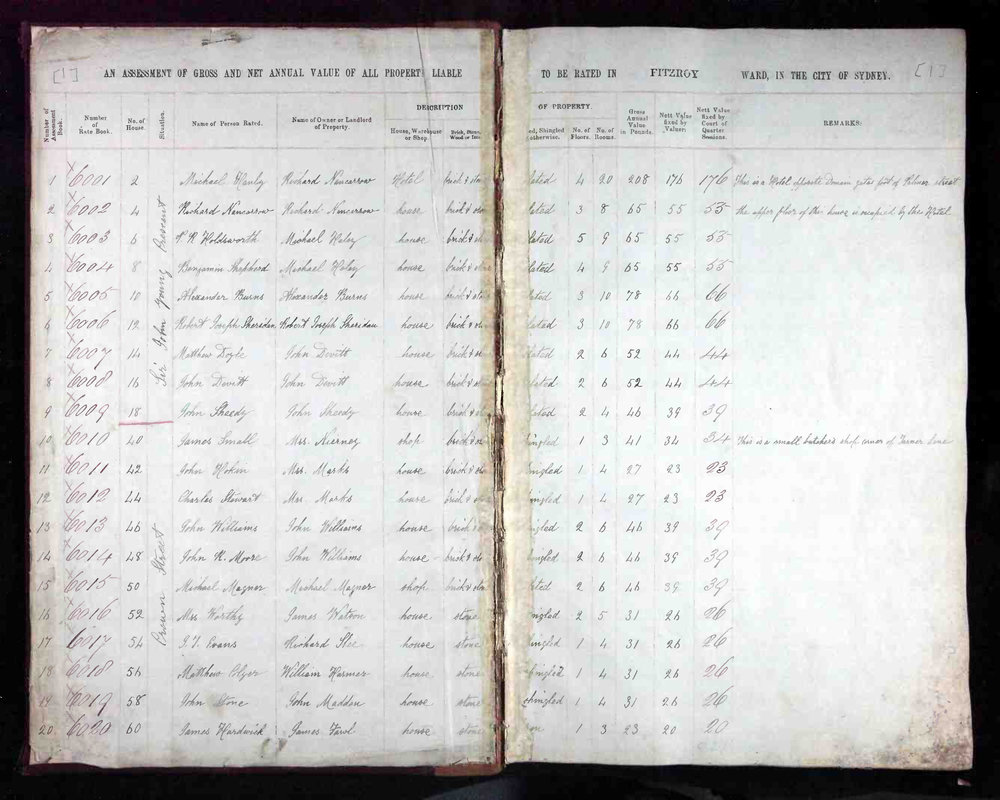 [1] AN ASSESSMENT OF GROSS AND NET ANNUAL VALUE OF ALL PROPERTY LIABLE TO BE RATED IN FITZROY WARD, IN THE CITY OF SYDNEY. [1]
Number of Assessment Book. Number of Rate Book. No. of House. Situation. Name of Person Rated. Name of Owner or Landlord of Property. DESCRIPTION OF PROPERTY. House, Warehouse or Shop. Brick, Stone, Wood or Iron ed, Shingled otherwise. No. of Floors. No. of Rooms. Gross Annual Value in Pounds. Nett Value fixed by Valuer. Nett Value fixed by Court of Quarter Sessions. REMARKS:
Sir John Young Crescent
1 6001 2 Michael Hanly Richard Nancarrow Hotel brick & stone lated 4 20 208 176 176 This is a Hotel opposite Domain gates foot of Palmer street
2 6002 4 Richard Nancarrow Richard Nancarrow house brick & stone lated 3 8 65 55 55 the upper floor of this house is occupied by the Hotel
3 6003 6 Holdsworth Michael Haley house brick & stone lated 5 9 65 55 55
4 6004 8 Benjamin Shepherd Michael Haley house brick & stone lated 4 9 65 55 55
5 6005 10 Alexander Burns Alexander Burns house brick & stone lated 3 10 78 66 66
6 6006 12 Robert Joseph Sheridan Robert Joseph Sheridan house brick & stone lated 3 10 78 66 66
7 6007 14 Matthew Doyle John Devitt house brick & stone lated 2 6 52 44 44
8 6008 16 John Devitt John Devitt house brick & stone lated 2 6 52 44 44
9 6009 18 John Sheedy John Sheedy house brick & stone lated 2 4 46 39 39
Crown Street
10 6010 40 James Small Mrs. Kierney shop brick & stone hingled 1 3 41 34 34 This is a small butchers shop corner of Turner Lane
11 6011 42 John Mrs. Marks house brick & stone hingled 1 4 27 23 23
12 6012 44 Charles Stewart Mrs. Marks house brick & stone hingled 1 4 27 23 23
13 6013 46 John Williams John Williams house brick & stone hingled 2 6 46 39 39
14 6014 48 John Moore John Williams house brick & stone hingled 2 6 46 39 39
15 6015 50 Michael Magner Michael Magner shop brick & stone lated 2 6 46 39 39
16 6016 52 Mrs Worthy James Watson house stone hingled 2 5 31 26 26
17 6017 54 Evans Richard house stone hingled 1 4 31 26 26
18 6018 56 Matthew William Harmer house stone shingled 1 4 31 26 26
19 6019 58 John Stone John Madden house stone shingled 1 4 31 26 26
20 6020 60 James Hardwick James house stone on 1 3 23 20 20